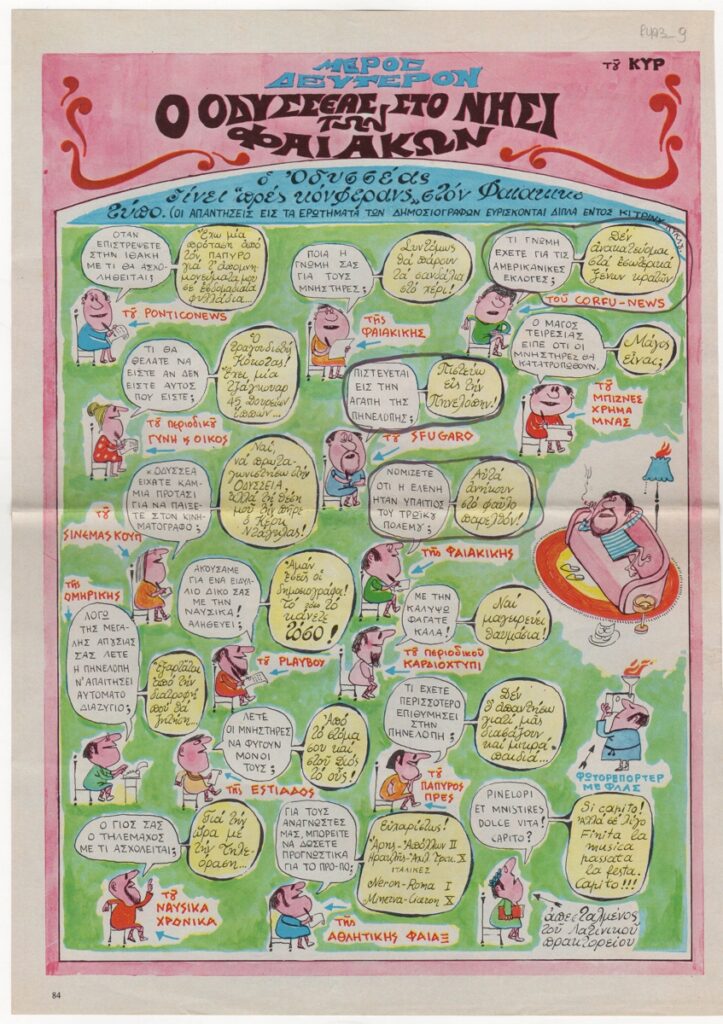 ΜΕΡΟΣ
ΔΕΥΤΕΡΟΝ
τοῦ ΚΥΡ
Ο ΟΔΥΣΣΕΑΣ ΣΤΟ ΝΗΣΙ
ΤΩΝ
ΦΑΙΑΚΩΝ
ὁ Ὀδυσσέας
δίνει "πρές κόνφερανς" στόν Φαιακικό
τύπο. (ΟΙ ΑΠΑΝΤΗΣΕΙΣ ΕΙΣ ΤΑ ΕΡΩΤΗΜΑΤΑ ΤΩΝ ΔΗΜΟΣΙΟΓΡΑΦΩΝ ΕΥΡΙΣΚΟΝΤΑΙ ΔΙΠΛΑ ΕΝΤΟΣ
ΟΤΑΝ
ΕΠΙΣΤΡΕΨΕΤΕ
ΣΤΗΝ ΙΘΑΚΗ
ΜΕ ΤΙ ΘΑ ΑΣΧΟ
ΛΗΘΕΙΤΑΙ;
Ἔχω μία
πρόταση ἀπό
τόν ΠΑΠΥΡΟ
γιά τ' ἀπομνη
μονεύματά μου
σέ ἑβδομαδιαῖα
φυλλάδια...
τοῦ PONTICONEWS
ΠΟΙΑ Η
ΓΝΩΜΗ ΣΑΣ
ΓΙΑ ΤΟΥΣ
ΜΝΗΣΤΗΡΕΣ;
Συντόμως
θά πάρουν
τά σανδάλια
στό χέρι!
τῆς
ΦΑΙΑΚΙΚΗΣ
ΤΙ ΓΝΩΜΗ
ΕΧΕΤΕ ΓΙΑ ΤΙΣ
ΑΜΕΡΙΚΑΝΙΚΕΣ
ΕΚΛΟΓΕΣ;
Δέν
ἀνακατεύομαι
στά ἐσωτερικά
ξένων κρατῶν
τοῦ CORFU-NEWS
ΤΙ ΘΑ
ΘΕΛΑΤΕ ΝΑ
ΕΙΣΤΕ ΑΝ ΔΕΝ
ΕΙΣΤΕ ΑΥΤΟΣ
ΠΟΥ ΕΙΣΤΕ;
Ὁ
τραγουδιστής
Κόκοτας!
Ἔχει μία
τζάγκουαρ
45 δουρείων
ἵππων...
τοῦ περιοδικοῦ
ΓΥΝΗ & ΟΙΚΟΣ
ΠΙΣΤΕΥΕΤΑΙ
ΕΙΣ ΤΗΝ
ΑΓΑΠΗ ΤΗΣ
ΠΗΝΕΛΟΠΗΣ;
Πιστεύω
εἰς τήν
Πηνελόπην!
τοῦ SFUGARO
Ο ΜΑΓΟΣ
ΤΕΙΡΕΣΙΑΣ
ΕΙΠΕ ΟΤΙ ΟΙ
ΜΝΗΣΤΗΡΕΣ ΘΑ
ΚΑΤΑΤΡΟΠΩΘΟΥΝ.
Μάγος
εἶναι;
τοῦ
ΜΠΙΖΝΕΣ
ΧΡΗΜΑ
ΜΝΑΣ
κ. ΟΔΥΣΣΕΑ
ΕΙΧΑΤΕ ΚΑΜ-
ΜΙΑ ΠΡΟΤΑΣΙ
ΓΙΑ ΝΑ ΠΑΙΞΕ-
ΤΕ ΣΤΟΝ ΚΙΝΗ-
ΜΑΤΟΓΡΑΦΟ;
Ναί,
νά πρωτα-
γωνιστήσω στήν
ΟΔΥΣΣΕΙΑ.
Ἀλλά τή θέση
μου τίς πῆρε
ὁ Κέρκ
Ντάγκλας!
τοῦ
ΣΙΝΕΜΑΣΚΟΥΠ
ΝΟΜΙΖΕΤΕ
ΟΤΙ Η ΕΛΕΝΗ
ΗΤΑΝ ΥΠΑΙΤΙΟΣ
ΤΟΥ ΤΡΩΙΚΟΥ
ΠΟΛΕΜΟΥ;
Αὐτά
ἀνήκουν
στό φαῦλο
παρελθόν!
τῆς ΦΑΙΑΚΙΚΗΣ
ΑΚΟΥΣΑΜΕ
ΓΙΑ ΕΝΑ ΕΙΔΥΛ-
ΛΙΟ ΔΙΚΟ ΣΑΣ
ΜΕ ΤΗΝ
ΝΑΥΣΙΚΑ!
ΑΛΗΘΕΥΕΙ;
Ἀμάν
ἐσεῖς οἱ
δημοσιογράφοι!
τό ἕνα τό
κάνετε
1060!
τοῦ PLAYBOY
ΜΕ ΤΗΝ
ΚΑΛΥΨΩ
ΦΑΓΑΤΕ
ΚΑΛΑ!
Ναί
μαγειρεύει
θαυμάσια!
τοῦ περιοδικοῦ
ΚΑΡΔΙΟΧΤΥΠΙ
τῆς
ΟΜΗΡΙΚΗΣ
ΛΟΓΩ
ΤΗΣ ΜΕΓΑ-
ΛΗΣ ΑΠΥΣΙΑΣ
ΣΑΣ ΛΕΤΕ
Η ΠΗΝΕΛΟΠΗ
Ν' ΑΠΑΙΤΗΣΕΙ
ΑΥΤΟΜΑΤΟ
ΔΙΑΖΥΓΙΟ;
Ἐξαρτᾶται
ἀπό τήν
διατροφή
πού θά
ζητήση...
ΛΕΤΕ
ΟΙ ΜΝΗΣΤΗΡΕΣ
ΝΑ ΦΥΓΟΥΝ
ΜΟΝΟΙ
ΤΟΥΣ;
Ἀπό
τό στόμα
σου καί
στοῦ Διός
τό οὖς!
τῆς ΕΣΤΙΑΔΟΣ
ΤΙ ΕΧΕΤΕ
ΠΕΡΙΣΣΟΤΕΡΟ
ΕΠΙΘΥΜΗΣΕΙ
ΣΤΗΝ
ΠΗΝΕΛΟΠΗ;
Δέν
σ' ἀπαντήσω
γιατί μᾶς
διαβάζουν
καί μικρά
παιδιά...
τοῦ
ΠΑΠΥΡΟΣ
ΠΡΕΣ
ΦΩΤΟΡΕΠΟΡΤΕΡ
ΜΕ ΦΛΑΣ
Ο ΓΙΟΣ ΣΑΣ
Ο ΤΗΛΕΜΑΧΟΣ
ΜΕ ΤΙ ΑΣΧΟΛΕΙΤΑΙ;
Γιά τήν
ὥρα μέ
τήν τηλε-
όραση...
τοῦ
ΝΑΥΣΙΚΑ
ΧΡΟΝΙΚΑ
ΓΙΑ ΤΟΥΣ
ΑΝΑΓΝΩΣΤΕΣ
ΜΑΣ, ΜΠΟΡΕΙΤΕ
ΝΑ ΔΩΣΕΤΕ
ΠΡΟΓΝΩΣΤΙΚΑ
ΓΙΑ ΤΟ ΠΡΟ-ΠΟ;
Εὐχαρίστως!
Ἄρης-Ἀπόλλων II
Ἡρακλῆς-Ἀχιλ. Τρικ. X
ΙΤΑΛΙΚΕΣ
Neron-Roma I
Minerva-Ciaron X
τῆς
ΑΘΛΗΤΙΚΗΣ ΦΑΙΑΞ
PINELOPI
ET MNISTIRES
DOLCE VITA!
CAPITO?
Si capito!
Ἀλλά σέ λίγο
Finita la
musica
passata
la festa.
Capito!!!
ἀπεσταλμένος
τοῦ Λατινικοῦ
πρακτορείου
84